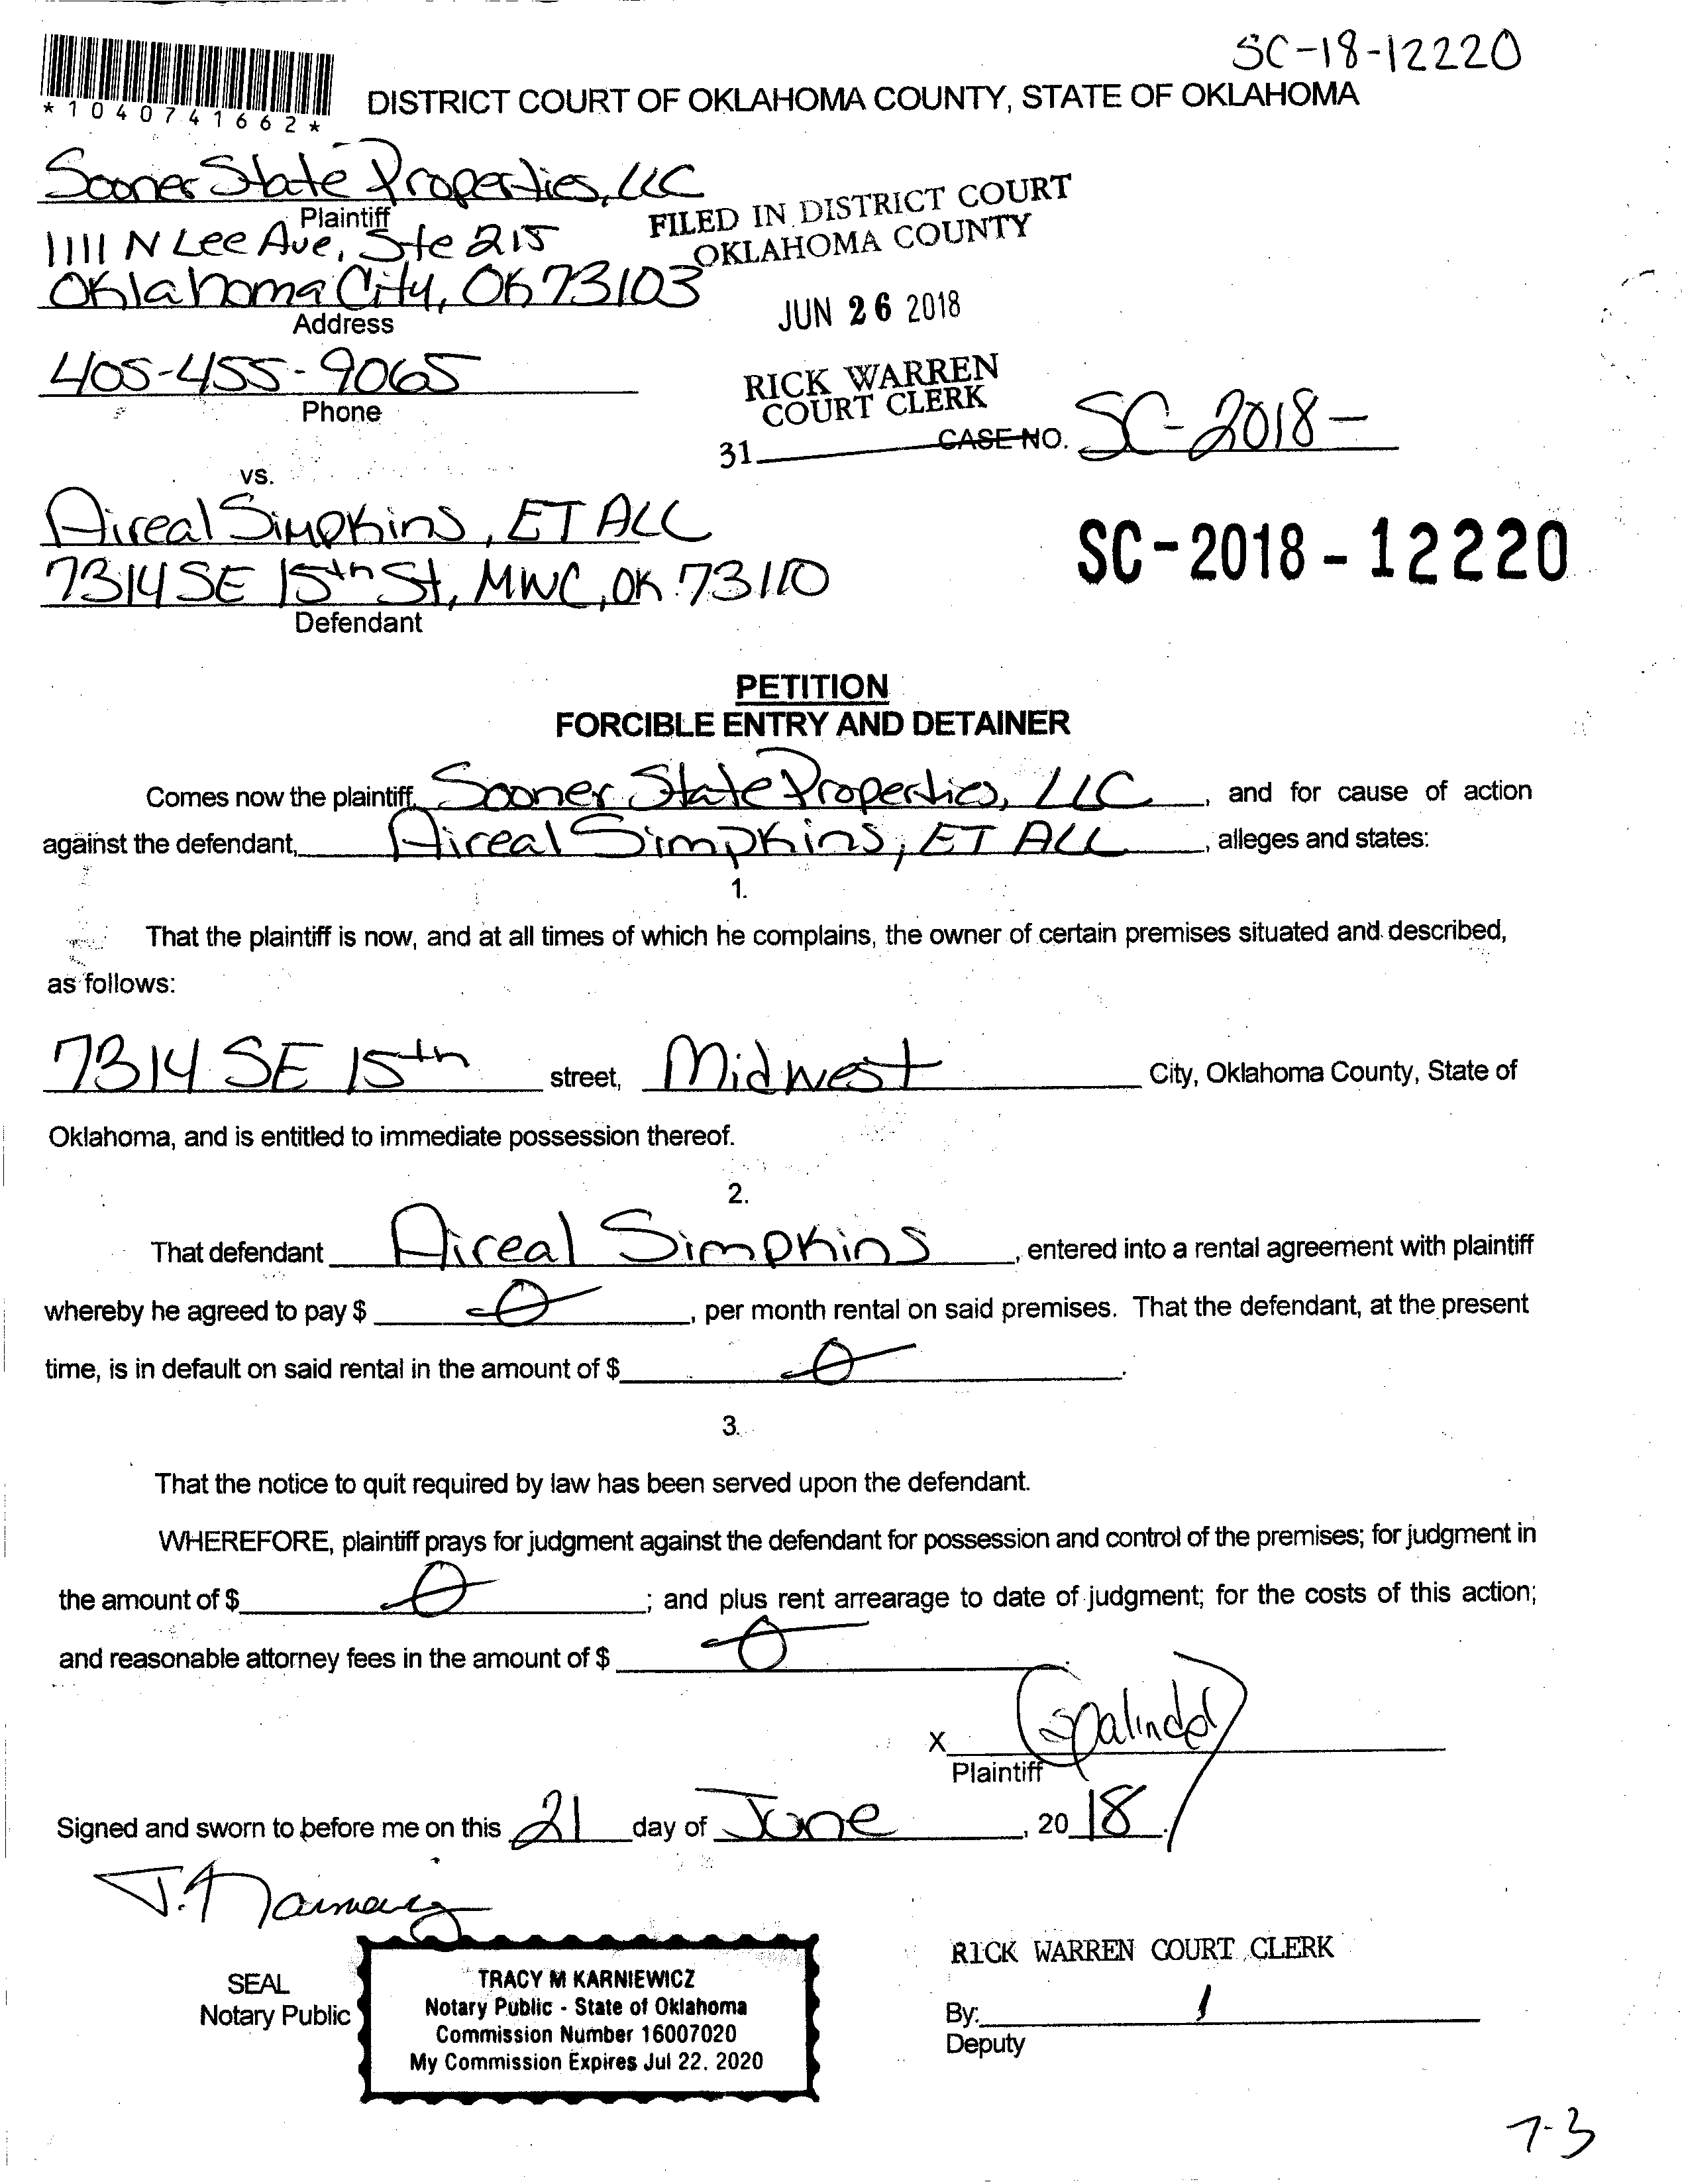 SC-18-12220
*1040741662*
DISTRICT COURT OF OKLAHOMA COUNTY, STATE OF OKLAHOMA
Sooner State Properties, LLC
Plaintiff
1111 N Lee Ave, Ste 215
Oklahoma City, OK 73103
Address
405-455-9065
Phone
FILED IN DISTRICT COURT
OKLAHOMA COUNTY
JUN 26 2018
RICK WARREN
COURT CLERK
31
CASE NO. SC-2018-
vs.
Aireal Simpkins, ET ALL
7314 SE 15th St, MWC, OK 73110
Defendant
SC-2018-12220
PETITION
FORCIBLE ENTRY AND DETAINER
Comes now the plaintiff, Sooner State Properties, LLC, and for cause of action
against the defendant, Aireal Simpkins, ET ALL, alleges and states:
1.
That the plaintiff is now, and at all times of which he complains, the owner of certain premises situated and described,
as follows:
7314 SE 15th street, Midwest City, Oklahoma County, State of
Oklahoma, and is entitled to immediate possession thereof.
2.
That defendant Aireal Simpkins, entered into a rental agreement with plaintiff
whereby he agreed to pay $ 0, per month rental on said premises. That the defendant, at the present
time, is in default on said rental in the amount of $ 0.
3.
That the notice to quit required by law has been served upon the defendant.
WHEREFORE, plaintiff prays for judgment against the defendant for possession and control of the premises; for judgment in
the amount of $ 0; and plus rent arrearage to date of judgment; for the costs of this action;
and reasonable attorney fees in the amount of $ 0.
X
Plaintiff
Signed and sworn to before me on this 21 day of June, 20 18.
SEAL
Notary Public
TRACY M KARNIEWICZ
Notary Public - State of Oklahoma
Commission Number 16007020
My Commission Expires Jul 22, 2020
RICK WARREN COURT CLERK
By:
Deputy
7-3